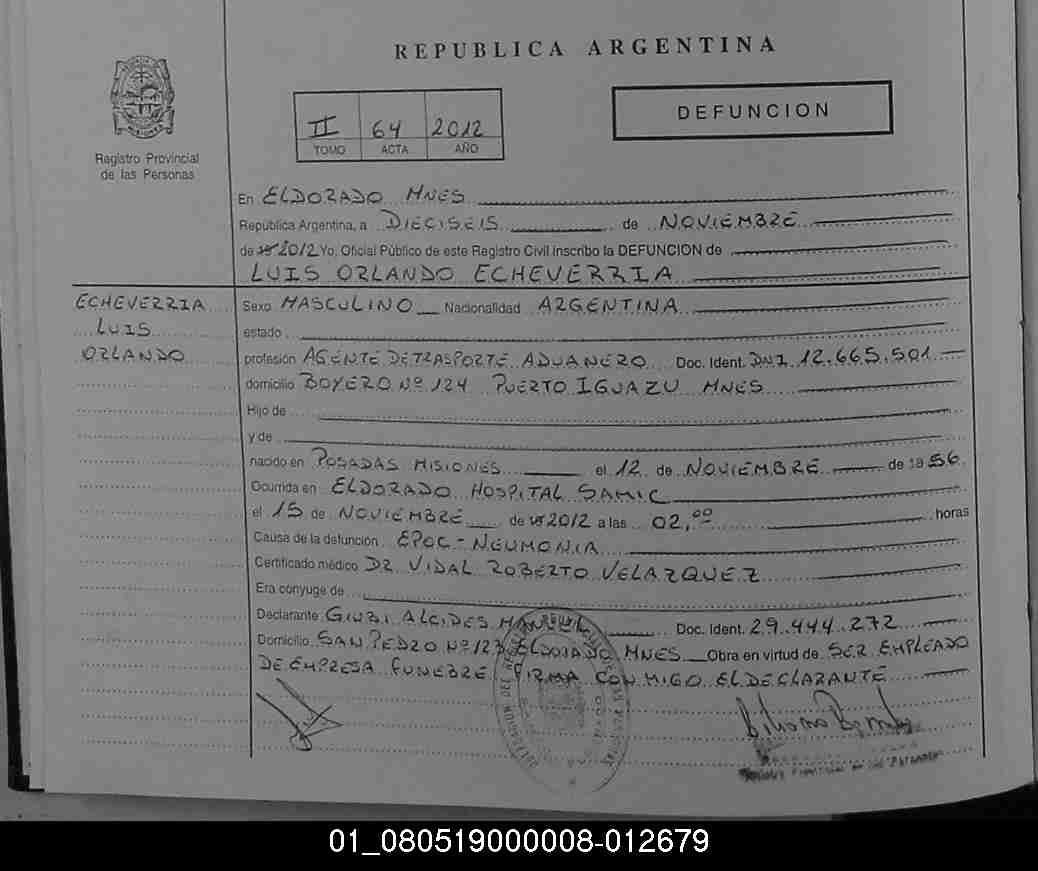 REPUBLICA ARGENTINA
DEFUNCION
II 64 2012
TOMO ACTA AÑO
Registro Provincial
de las Personas
En ELDORADO MNES
República Argentina, a DIECISEIS de NOVIEMBRE
de 2012 Yo, Oficial Público de este Registro Civil inscribo la DEFUNCION de
LUIS ORLANDO ECHEVERRIA
ECHEVERRIA
LUIS
ORLANDO
Sexo MASCULINO Nacionalidad ARGENTINA
estado
profesión AGENTE DE TRASPORTE ADUANERO Doc. Ident. DNI 12.665.501
domicilio BOYERO Nº 124 PUERTO IGUAZU MNES
Hijo de
y de
nacido en POSADAS MISIONES el 12 de NOVIEMBRE de 1956
Ocurrida en ELDORADO HOSPITAL SAMIC
el 15 de NOVIEMBRE de 2012 a las 02,00 horas
Causa de la defunción EPOC - NEUMONIA
Certificado médico DR VIDAL ROBERTO VELAZQUEZ
Era conyuge de
Declarante GIUBI ALCIDES MANUEL Doc. Ident. 29.444.272
Domicilio SAN PEDRO Nº 123 ELDORADO MNES Obra en virtud de SER EMPLEADO
DE EMPRESA FUNEBRE FIRMA CONMIGO EL DECLARANTE
01_080519000008-012679